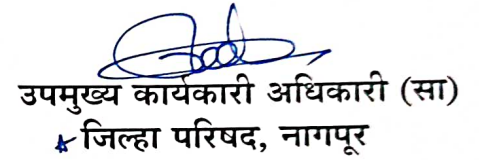 उपमुख्य कार्यकारी अधिकारी (सा)
जिल्हा परिषद, नागपूर